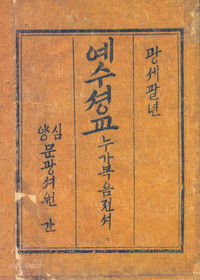 광셰팔년
예수셩교
누가복음젼셔
심양문광셔원 간